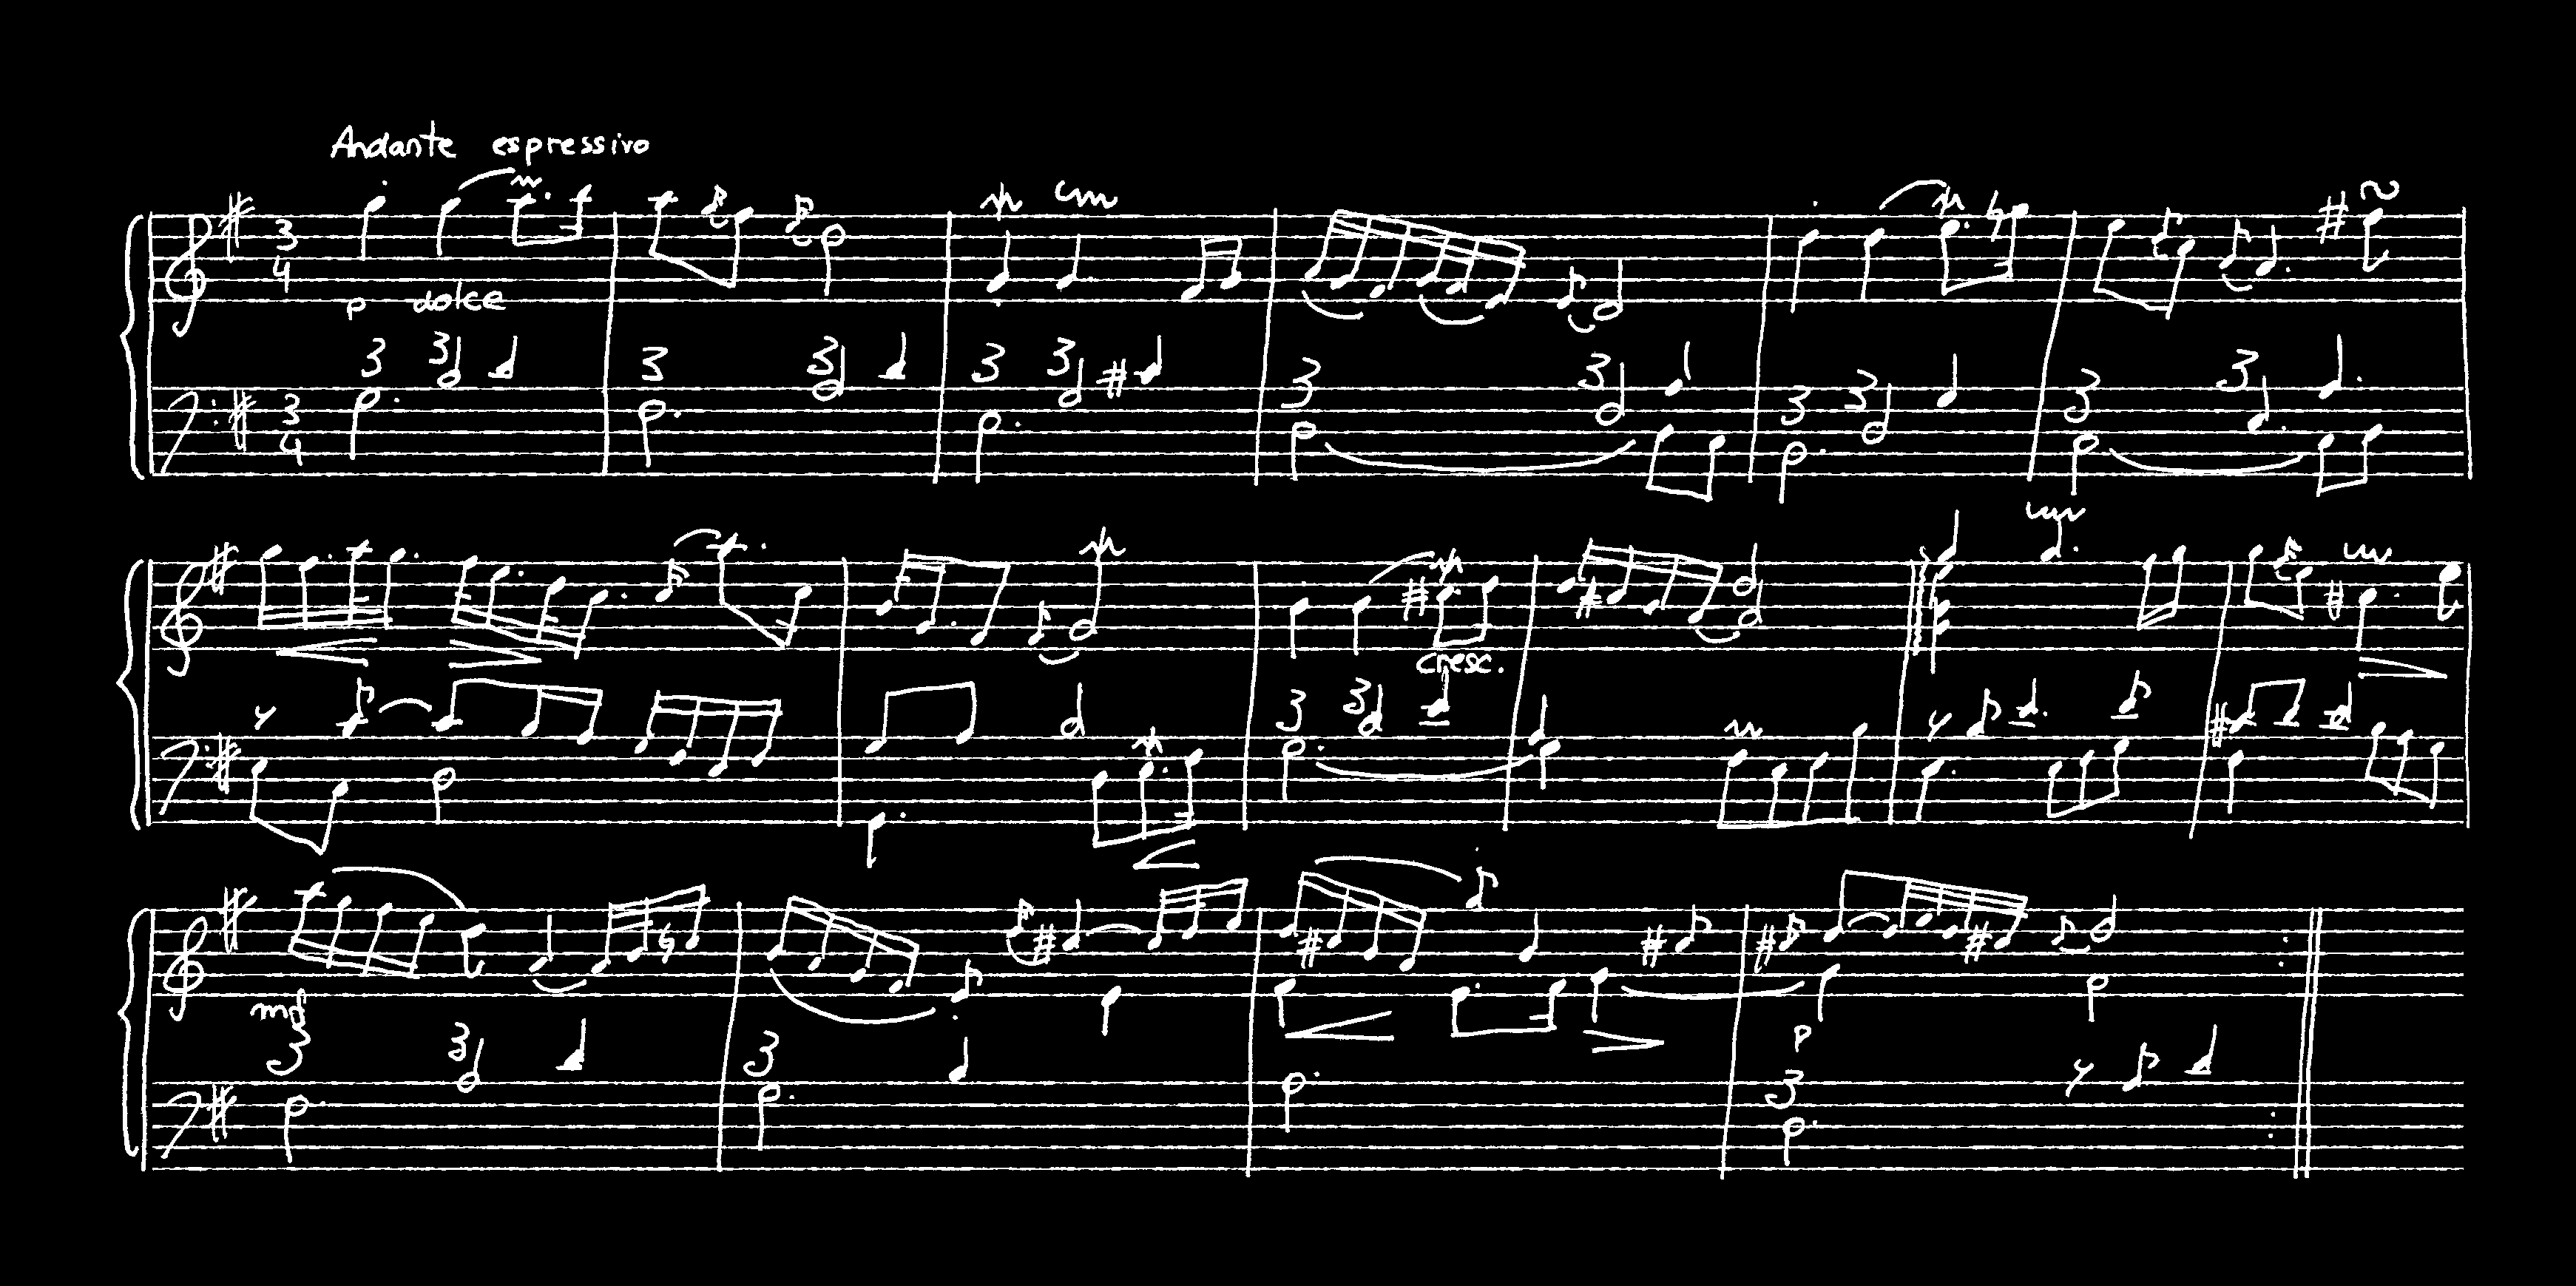 Andante espressivo
p dolce
cresc.
mf
p